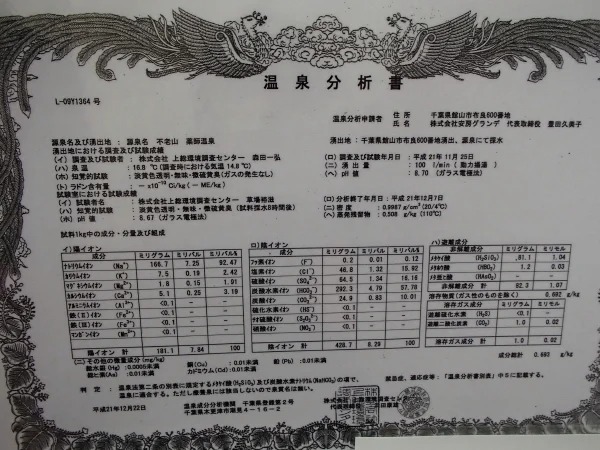 温泉分析書
L-09Y1364 号
温泉分析申請者 住所 千葉県館山市布良600番地
氏名 株式会社安房グランデ 代表取締役 豊田久美子
源泉名及び湧出地 源泉名 不老山 薬師温泉 湧出地：千葉県館山市布良600番地湧出、源泉にて採水
湧出地における調査及び試験成績
(イ) 調査及び試験者：株式会社 上総環境調査センター 森田一弘 (ロ) 調査及び試験年月日：平成 21年 11月 25日
(ハ) 泉温：16.8 ℃ (調査時における気温 14.8 ℃) (ニ) 湧出量：100 l/min (動力揚湯)
(ホ) 知覚的試験：淡黄色透明・無味・微硫黄臭(ガスの発生なし) (ヘ) pH値：8.70 (ガラス電極法)
(ト) ラドン含有量：― x10⁻¹⁰ Ci/kg (― ME/kg)
試験室における試験成績
(イ) 試験者名：株式会社上総環境調査センター (ロ) 分析終了年月日：平成 21年12月7日
(ハ) 知覚的試験：淡黄色透明・無味・微硫黄臭 (試料採水8時間後) (ニ) 密度：0.9987 g/cm³ (20/4℃)
(ホ) pH値：8.67 (ガラス電極法) (ヘ) 蒸発残留物：0.508 g/kg (110℃)
試料1kg中の成分・分量及び組成
イ) 陽イオン
成分 ミリグラム ミリバル ミリバル%
ナトリウムイオン (Na⁺) 166.7 7.25 92.47
カリウムイオン (K⁺) 7.5 0.19 2.42
マグネシウムイオン (Mg²⁺) 1.8 0.15 1.91
カルシウムイオン (Ca²⁺) 5.1 0.25 3.19
アルミニウムイオン (Al³⁺) <0.1
鉄(Ⅱ)イオン (Fe²⁺) <0.1
鉄(Ⅲ)イオン (Fe³⁺) <0.1
マンガンイオン (Mn²⁺) <0.1
陽イオン計 181.1 7.84 100
ロ) 陰イオン
成分 ミリグラム ミリバル ミリバル%
フッ素イオン (F⁻) 0.2 0.01 0.12
塩素イオン (Cl⁻) 46.8 1.32 15.92
硫酸イオン (SO₄²⁻) 64.5 1.34 16.16
炭酸水素イオン (HCO₃⁻) 292.3 4.79 57.78
炭酸イオン (CO₃²⁻) 24.9 0.83 10.01
硫化水素イオン (HS⁻) <0.1
チオ硫酸イオン (S₂O₃²⁻) <0.1
硝酸イオン (NO₃⁻) <0.1
陰イオン計 428.7 8.29 100
ハ) 遊離成分
非解離成分 ミリグラム ミリモル
メタケイ酸 (H₂SiO₃) 81.1 1.04
メタホウ酸 (HBO₂) 1.2 0.03
メタ亜ヒ酸 (HAsO₂) <0.1
非解離成分計 82.3 1.07
溶存物質(ガス性のものを除く) 0.692 g/kg
溶存ガス成分 ミリグラム ミリモル
遊離硫化水素 (H₂S) <0.1
遊離二酸化炭素 (CO₂) 1.0 0.02
溶存ガス成分計 1.0 0.02
成分総計 0.693 g/kg
(ニ) その他の微量成分 (mg/kg)
総水銀 (Hg)：0.0005未満 銅 (Cu)：0.01未満 鉛 (Pb)：0.01未満
総ヒ素 (As)：0.01未満 カドミウム (Cd)：0.01未満
判定：温泉法第二条の別表に規定するメタケイ酸(H₂SiO₃)及び炭酸水素ナトリウム(NaHCO₃)の項で、
温泉に適合する。ただし療養泉には該当しないので泉質名は無い。
禁忌症、適応症等：「温泉分析書別表」中5に記載する。
平成21年12月22日 温泉成分分析機関 千葉県登録第2号
千葉県木更津市潮見4-16-2